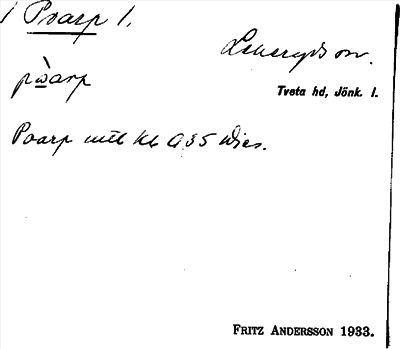 1 Poarp 1.
Lekeryds sn.
pẁarp
Tveta hd, Jönk. l.
Poarp mtl kb 935 Dies.
FRITZ ANDERSSON 1933.